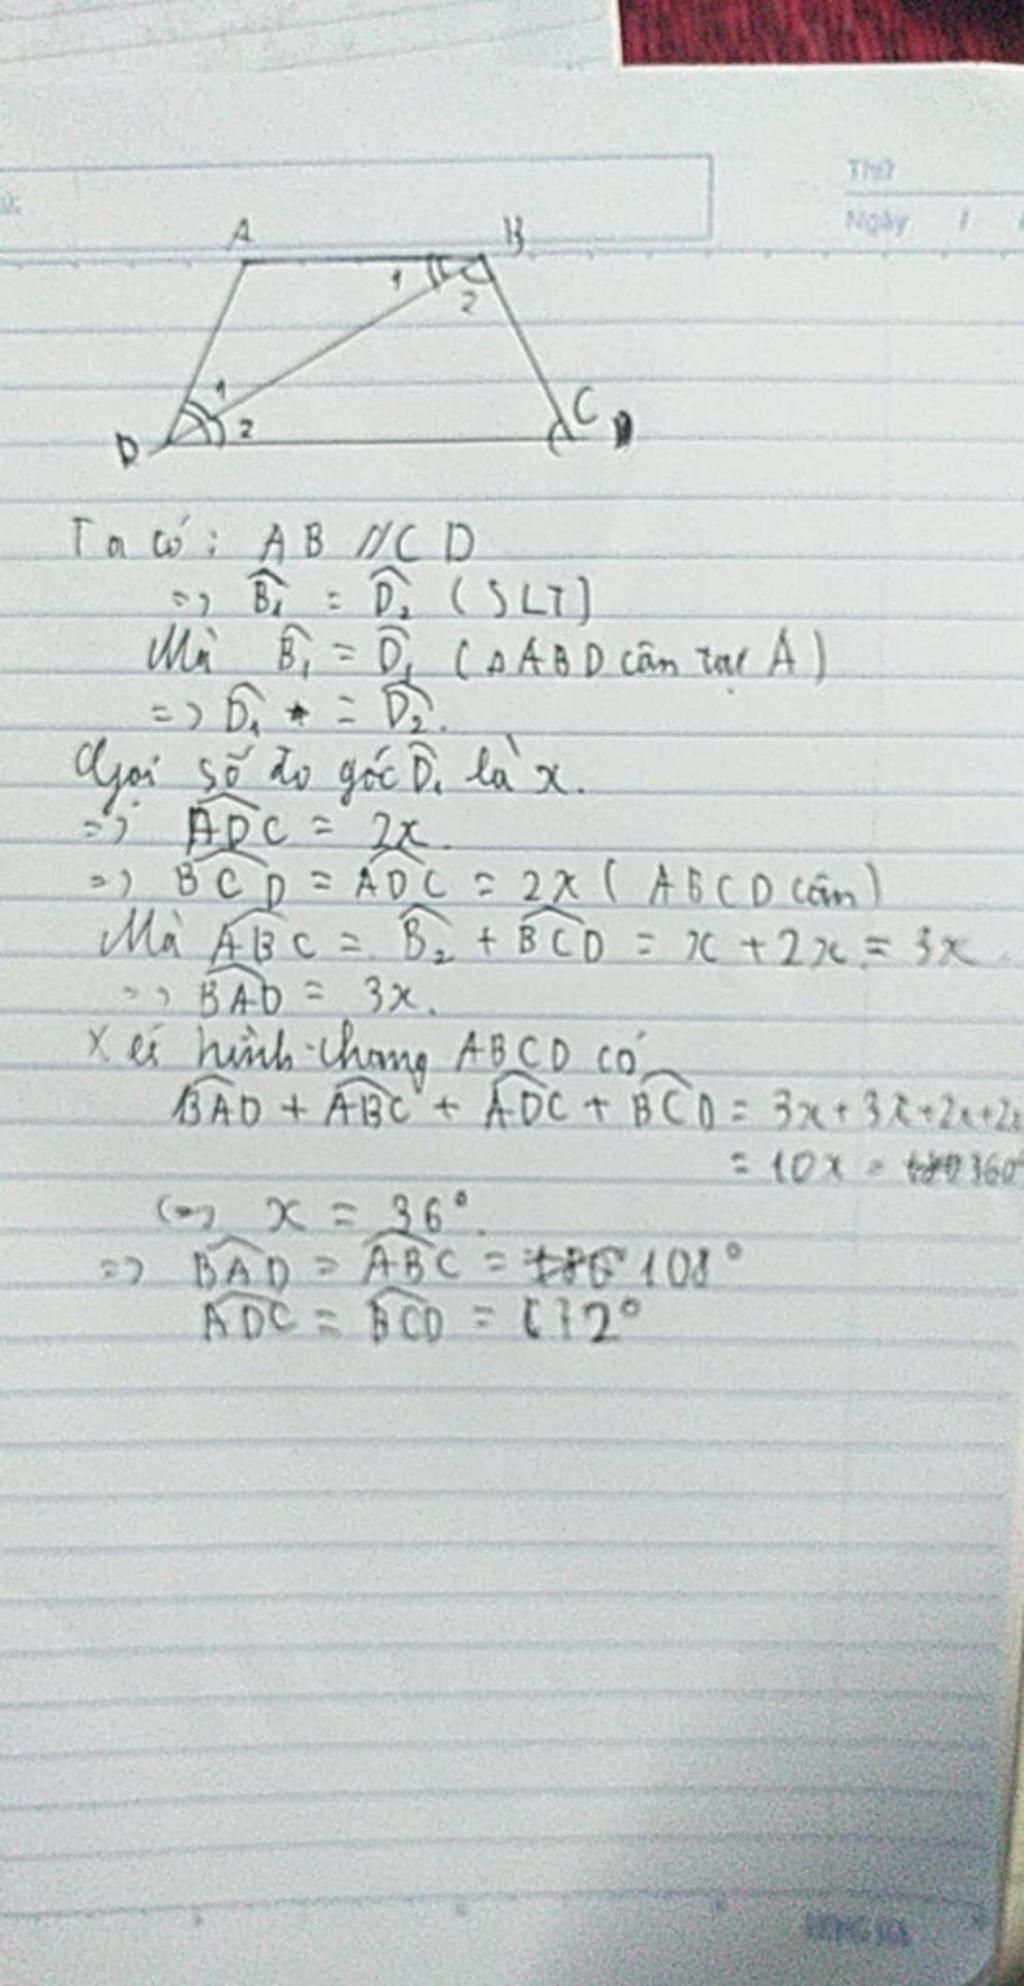 Thứ
Ngày / /
A B
1 2
1 2
D C
Ta có: AB // CD
=> B̂₁ = D̂₂ (SLT)
Mà B̂₁ = D̂₁ (ΔABD cân tại A)
=> D̂₁ = D̂₂.
Gọi số đo góc D̂₁ là x.
=> ADC = 2x.
=> BCD = ADC = 2x (ABCD cân)
Mà ABC = B̂₂ + BCD = x + 2x = 3x.
=> BAD = 3x.
Xét hình thang ABCD có
BAD + ABC + ADC + BCD = 3x + 3x + 2x + 2x
= 10x = 360°
<=> x = 36°.
=> BAD = ABC = 108°
ADC = BCD = 72°